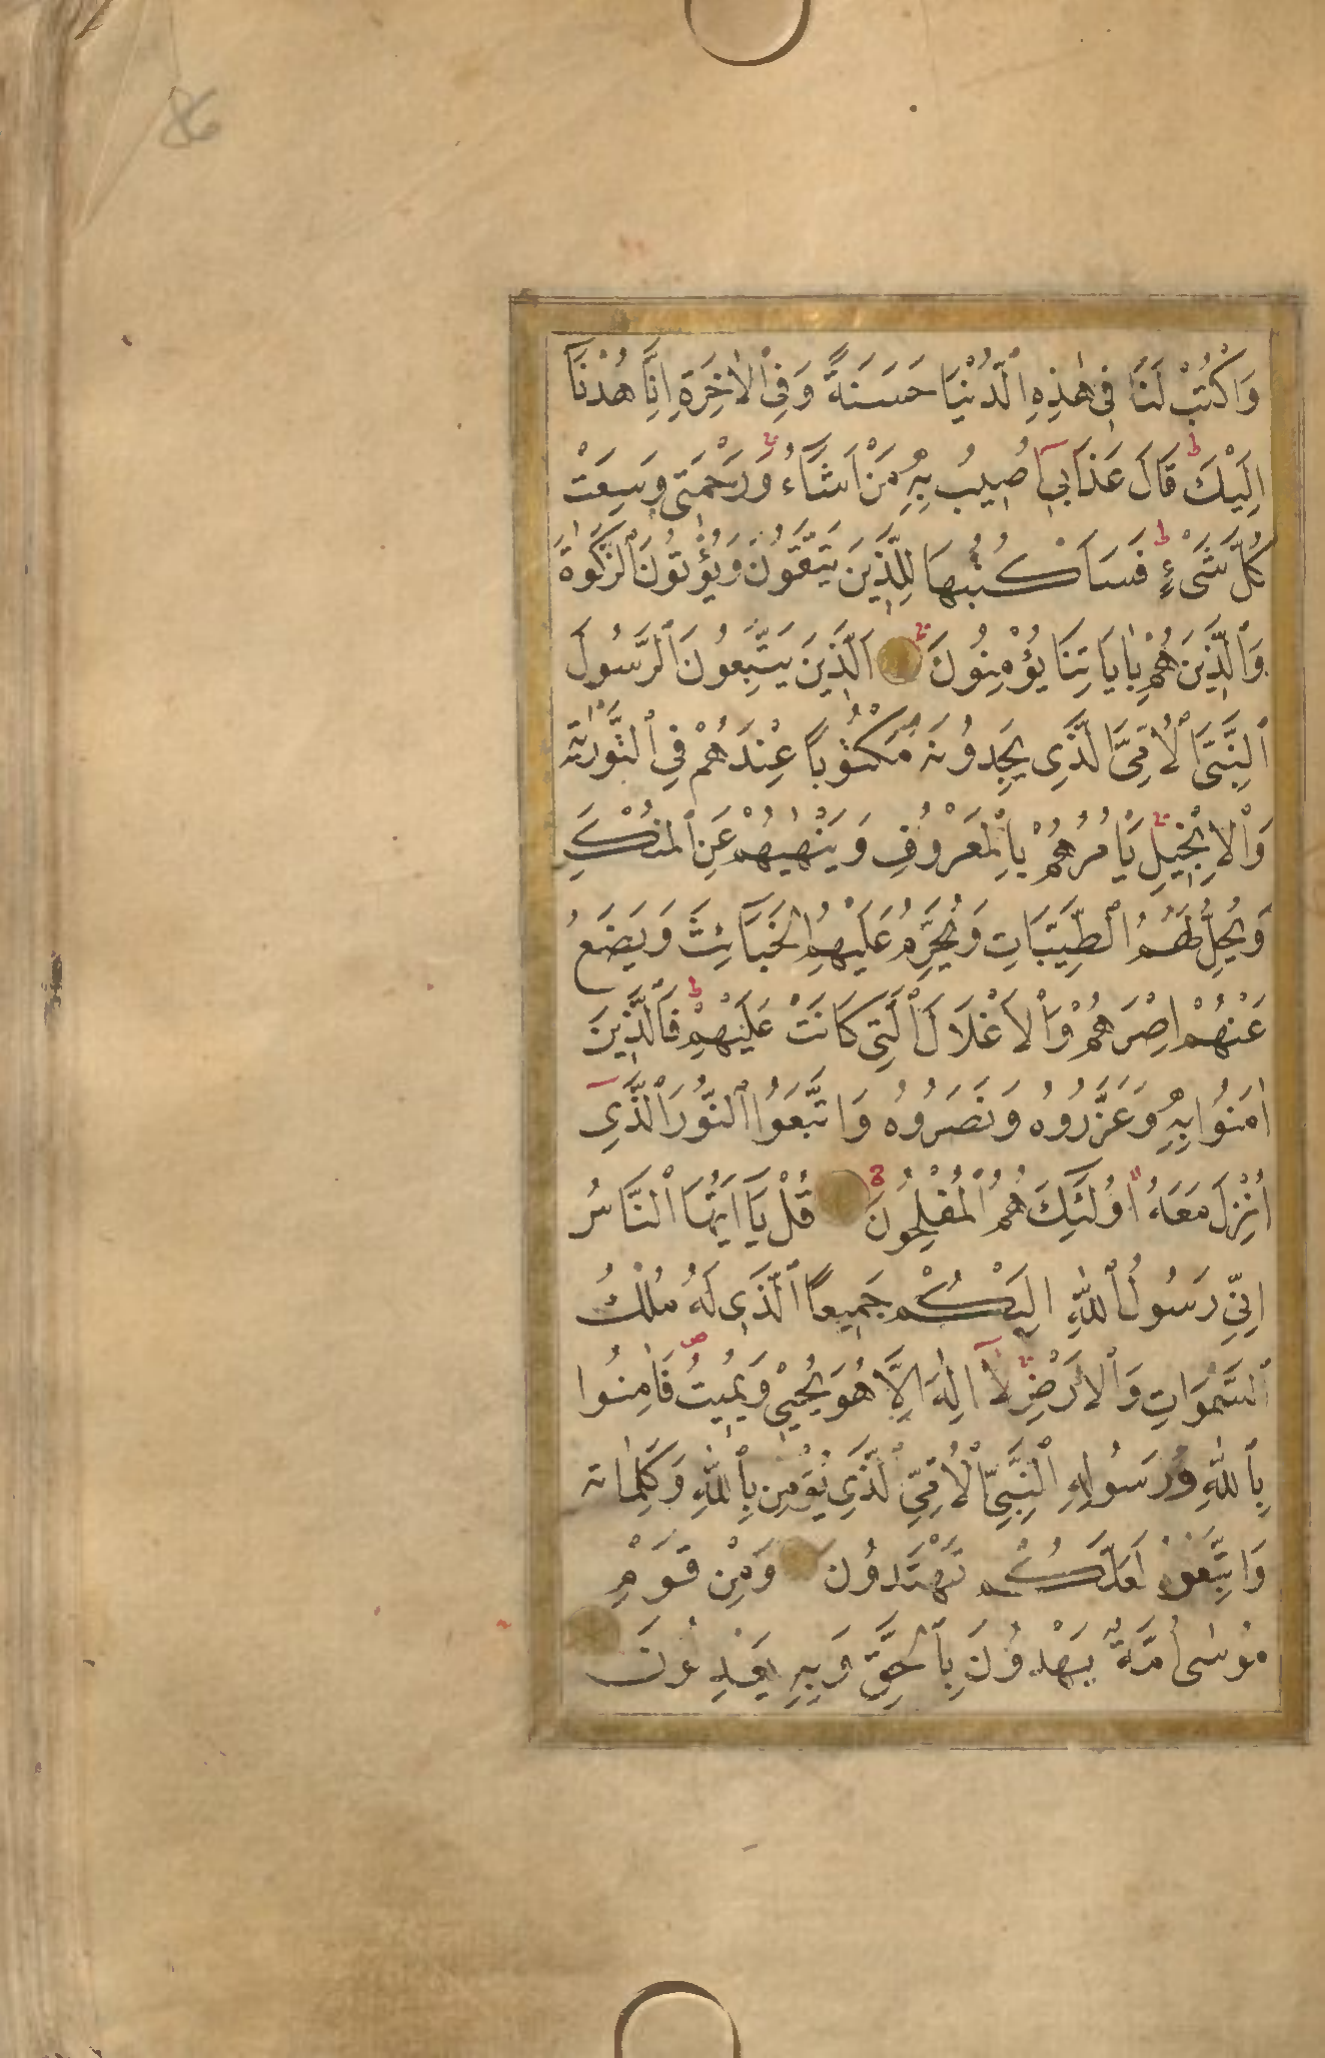 وَاكْتُبْ لَنَا فِى هٰذِهِ ٱلدُّنْيَا حَسَنَةً وَفِى ٱلْاٰخِرَةِ اِنَّا هُدْنَا
اِلَيْكَ ط قَالَ عَذَابِى اُصِيبُ بِهِ مَنْ اَشَاءُ وَرَحْمَتِى وَسِعَتْ
كُلَّ شَىْءٍ ط فَسَاَكْتُبُهَا لِلَّذِينَ يَتَّقُونَ وَيُؤْتُونَ ٱلزَّكٰوةَ
وَٱلَّذِينَ هُمْ بِاٰيَاتِنَا يُؤْمِنُونَ اَلَّذِينَ يَتَّبِعُونَ ٱلرَّسُولَ
ٱلنَّبِىَّ ٱلْاُمِّىَّ ٱلَّذِى يَجِدُونَهُ مَكْتُوبًا عِنْدَهُمْ فِى ٱلتَّوْرٰيةِ
وَٱلْاِنْجِيلِ يَاْمُرُهُمْ بِالْمَعْرُوفِ وَيَنْهٰيهُمْ عَنِ ٱلْمُنْكَرِ
وَيُحِلُّ لَهُمُ ٱلطَّيِّبَاتِ وَيُحَرِّمُ عَلَيْهِمُ الْخَبَائِثَ وَيَضَعُ
عَنْهُمْ اِصْرَهُمْ وَٱلْاَغْلَالَ ٱلَّتِى كَانَتْ عَلَيْهِمْ ط فَٱلَّذِينَ
اٰمَنُوا بِهِ وَعَزَّرُوهُ وَنَصَرُوهُ وَاتَّبَعُوا ٱلنُّورَ ٱلَّذِى
اُنْزِلَ مَعَهُ اُولٰئِكَ هُمُ ٱلْمُفْلِحُونَ قُلْ يَا اَيُّهَا ٱلنَّاسُ
اِنِّى رَسُولُ ٱللّٰهِ اِلَيْكُمْ جَمِيعًا ٱلَّذِى لَهُ مُلْكُ
ٱلسَّمٰوَاتِ وَٱلْاَرْضِ لَا اِلٰهَ اِلَّا هُوَ يُحْيِى وَيُمِيتُ ص فَاٰمِنُوا
بِٱللّٰهِ وَرَسُولِهِ ٱلنَّبِىِّ ٱلْاُمِّىِّ ٱلَّذِى يُؤْمِنُ بِٱللّٰهِ وَكَلِمَاتِهِ
وَاتَّبِعُوهُ لَعَلَّكُمْ تَهْتَدُونَ وَمِنْ قَوْمِ
مُوسٰى اُمَّةٌ يَهْدُونَ بِٱلْحَقِّ وَبِهِ يَعْدِلُونَ